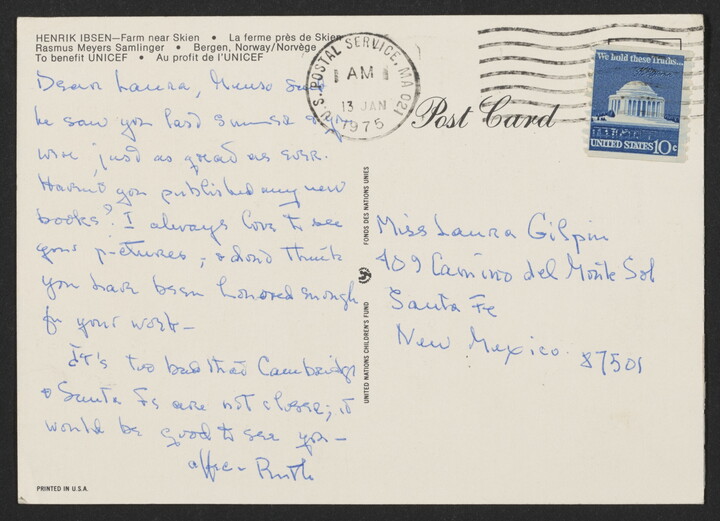 HENRIK IBSEN—Farm near Skien • La ferme près de Skien
Rasmus Meyers Samlinger • Bergen, Norway/Norvège
To benefit UNICEF • Au profit de l'UNICEF
Dear Laura, said
he saw you last summer & you
were just as great as ever.
Haven't you published any new
books? I always love to see
your pictures, & don't think
you have been honored enough
for your work—
It's too bad that Cambridge
& Santa Fe are not closer; it
would be good to see you—
affec. Ruth
PRINTED IN U.S.A.
U.S. POSTAL SERVICE, MA 021
AM
13 JAN
1975
Post Card
We hold these truths...
UNITED STATES 10c
FONDS DES NATIONS UNIES
UNITED NATIONS CHILDREN'S FUND
Miss Laura Gilpin
409 Camino del Monte Sol
Santa Fe
New Mexico 87501